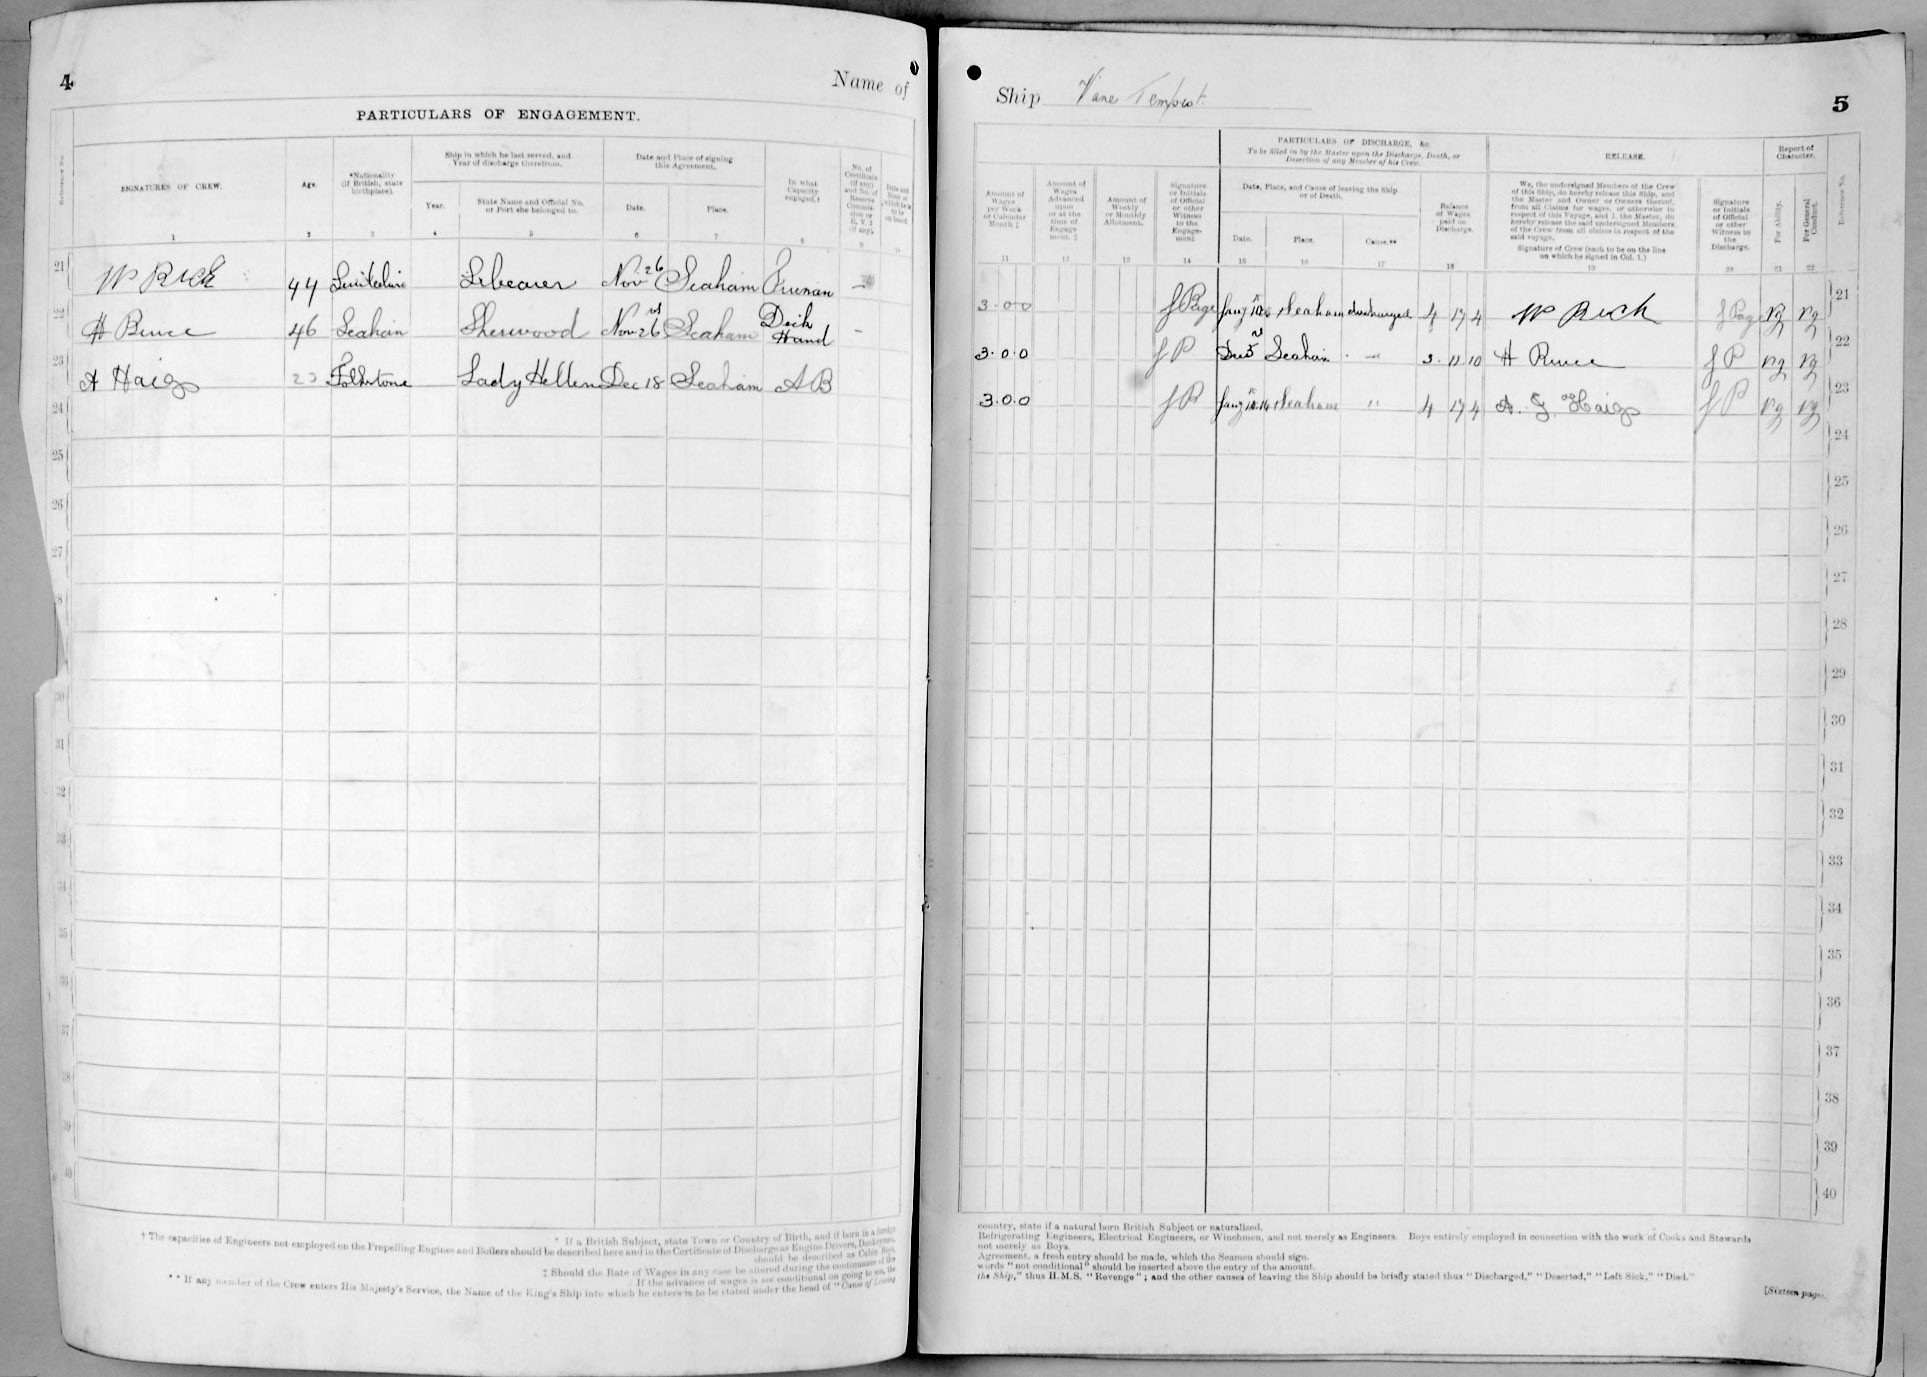 4
Name of
PARTICULARS OF ENGAGEMENT.
Reference No.
SIGNATURES OF CREW.
Age.
*Nationality
(if British, state
birthplace).
Ship in which he last served, and
Year of discharge therefrom.
Year.
State Name and Official No.
or Port she belonged to.
Date and Place of signing
this Agreement.
Date.
Place.
In what
Capacity
engaged.†
No. of
Certificate
(if any)
1 2 3 4 5 6 7 8 9 10
21 W Rich 44 Nov 26 Seaham Fireman –
22 H Bruce 46 Seaham Sherwood Nov 26 Seaham Deck Hand –
23 A Haig Folkstone Lady Hellen Dec 18 Seaham A B
24
25
26
27
31
32
33
34
35
36
37
38
39
40
* If a British Subject, state Town or Country of Birth, and if born in a foreign
† The capacities of Engineers not employed on the Propelling Engines and Boilers should be described here and in the Certificate of Discharge as Engine Drivers, Donkeymen,
should be described as Cabin Boys,
‡ Should the Rate of Wages in any case be altered during the continuance of the
If the advance of wages is not conditional on going to sea, the
** If any member of the Crew enters His Majesty's Service, the Name of the King's Ship into which he enters is to be stated under the head of "Cause of Leaving
Ship Vane Tempest
5
PARTICULARS OF DISCHARGE, &c.
To be filled in by the Master upon the Discharge, Death, or
Desertion of any Member of his Crew.
RELEASE.
Report of
Character.
Amount of
Wages
per Week
or Calendar
Month ‡
Amount of
Wages
Advanced
upon
or at the
time of
Engage
ment. ‡
Amount of
Weekly
or Monthly
Allotment.
Signature
or Initials
of Official
or other
Witness
to the
Engage-
ment
Date, Place, and Cause of leaving the Ship
or of Death.
Date.
Place.
Cause.**
Balance
of Wages
paid on
Discharge.
We, the undersigned Members of the Crew
of this Ship, do hereby release this Ship, and
the Master and Owner or Owners thereof,
from all Claims for wages, or otherwise in
respect of this Voyage, and I, the Master, do
hereby release the said undersigned Members
of the Crew from all claims in respect of the
said voyage.
Signature of Crew (each to be on the line
on which he signed in Col. 1.)
Signature
or Initials
of Official
or other
Witness to
the
Discharge.
For Ability.
For General
Conduct.
Reference No.
11 12 13 14 15 16 17 18 19 20 21 22
3-0-0 J Page Seaham discharged 4 17 4 W Rich J Page Vg Vg 21
3.0.0 J P Seaham 3. 12 10 H Bruce J P Vg Vg 22
3.0.0 J P Seaham " 4 17 4 A. G. Haig J P Vg Vg 23
24
25
26
27
28
29
30
31
32
33
34
35
36
37
38
39
40
country, state if a natural born British Subject or naturalized.
Refrigerating Engineers, Electrical Engineers, or Winchmen, and not merely as Engineers. Boys entirely employed in connection with the work of Cooks and Stewards
not merely as Boys.
Agreement, a fresh entry should be made, which the Seamen should sign.
words "not conditional" should be inserted above the entry of the amount.
the Ship," thus H.M.S. "Revenge"; and the other causes of leaving the Ship should be briefly stated thus "Discharged," "Deserted," "Left Sick," "Died."
[Sixteen pages.